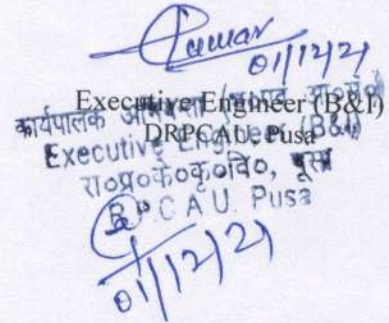 Kumar
01/12/21
Executive Engineer (B&I)
DRPCAU, Pusa
कार्यपालक
Executive Engineer (B&I)
रा०प्र०के०कृ०वि०, पूसा
R.P.C.A.U. Pusa
01/12/21